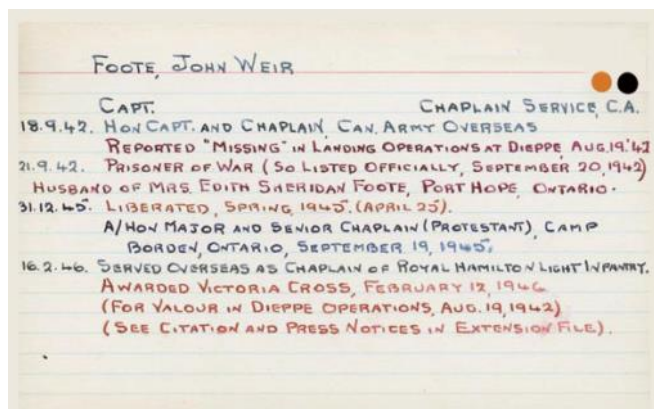 FOOTE, JOHN WEIR
CAPT. CHAPLAIN SERVICE, C.A.
18.9.42. HON CAPT. AND CHAPLAIN, CAN. ARMY OVERSEAS
REPORTED "MISSING" IN LANDING OPERATIONS AT DIEPPE, AUG.19.'42
21.9.42. PRISONER OF WAR (SO LISTED OFFICIALLY, SEPTEMBER 20, 1942)
HUSBAND OF MRS. EDITH SHERIDAN FOOTE, PORT HOPE, ONTARIO.
31.12.45. LIBERATED, SPRING, 1945. (APRIL 25).
A/HON MAJOR AND SENIOR CHAPLAIN (PROTESTANT), CAMP
BORDEN, ONTARIO, SEPTEMBER 19, 1945.
16.2.46. SERVED OVERSEAS AS CHAPLAIN OF ROYAL HAMILTON LIGHT INFANTRY.
AWARDED VICTORIA CROSS, FEBRUARY 12, 1946
(FOR VALOUR IN DIEPPE OPERATIONS, AUG. 19, 1942)
(SEE CITATION AND PRESS NOTICES IN EXTENSION FILE).